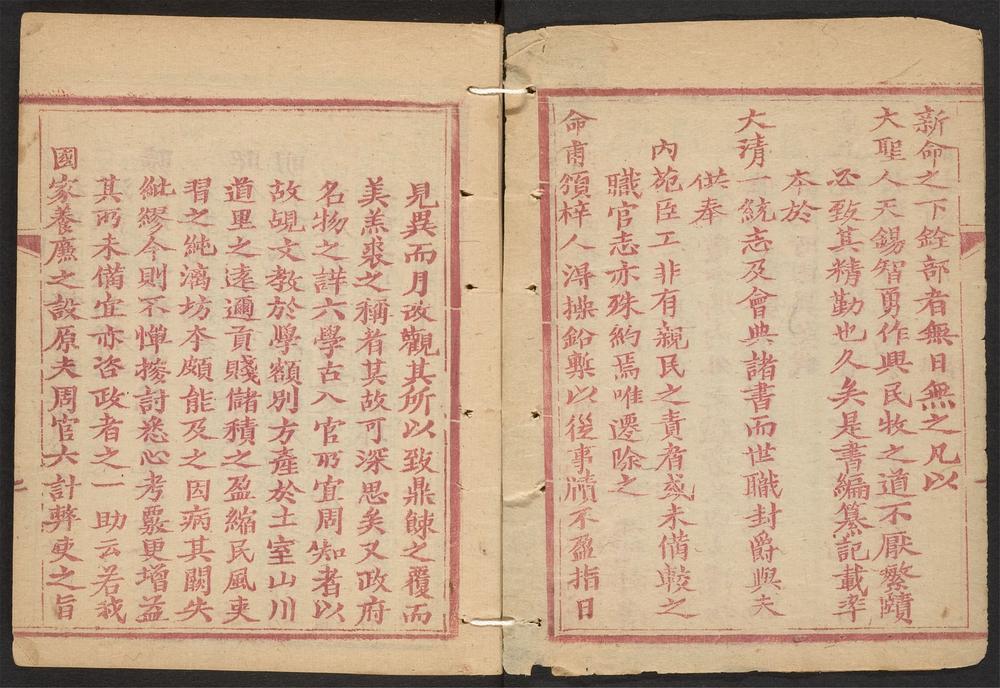 新命之下銓部者無日無之凡以
大聖人天錫智勇作興民牧之道不厭繁賾
必致其精勤也久矣是書編纂記載率
夲於
大清一統志及會典諸書而世職封爵與夫
供奉
內苑臣工非有親民之責者或未備較之
職官志亦殊約焉唯遷除之
命甫頒梓人淂操鉛槧以從事牘不盈指日
見異而月改觀其所以致鼎餗之覆而
美羔裘之稱者其故可深思矣又政府
名物之詳六學古入官所宜周知者以
故覘文教於學額別方產於土室山川
道里之遠邇貢賤儲積之盈縮民風吏
習之純漓坊夲頗能及之因病其闕失
紕繆今則不憚摉討悉心考覈更增益
其所未備宜亦咨政者之一助云若我
國家養廉之設原夫周官六計弊吏之旨